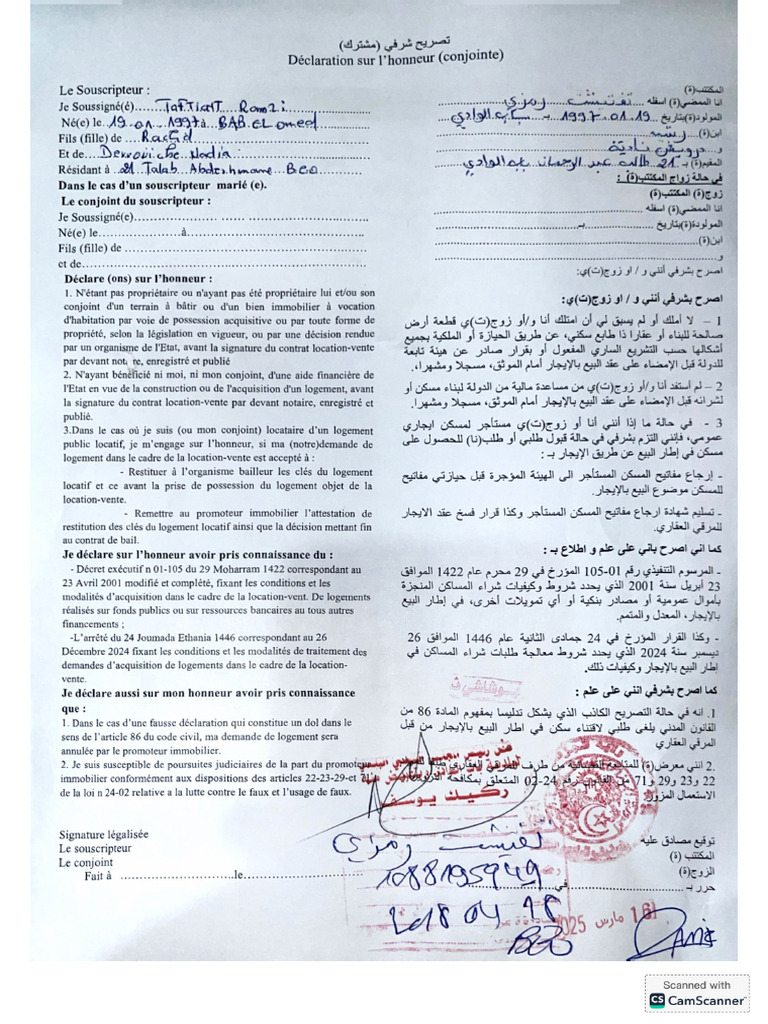 تصريح شرفي (مشترك)
Déclaration sur l'honneur (conjointe)
Le Souscripteur :
Je Soussigné(é)..... TAFTICHT Ramzi
Né(e) le 19.01.1997 à BAB EL Oued
Fils (fille) de Rachid
Et de Derrouiche Nadia
Résidant à 21 Talab Abderhmane BEO
Dans le cas d'un souscripteur marié (e).
Le conjoint du souscripteur :
Je Soussigné(e)..................
Né(e) le..................à..................
Fils (fille) de ..................
et de..................
Déclare (ons) sur l'honneur :
1. N'étant pas propriétaire ou n'ayant pas été propriétaire lui et/ou son
conjoint d'un terrain à bâtir ou d'un bien immobilier à vocation
d'habitation par voie de possession acquisitive ou par toute forme de
propriété, selon la législation en vigueur, ou par une décision rendue
par un organisme de l'Etat, avant la signature du contrat location-vente
par devant notaire, enregistré et publié
2. N'ayant bénéficié ni moi, ni mon conjoint, d'une aide financière de
l'Etat en vue de la construction ou de l'acquisition d'un logement, avant
la signature du contrat location-vente par devant notaire, enregistré et
publié.
3.Dans le cas où je suis (ou mon conjoint) locataire d'un logement
public locatif, je m'engage sur l'honneur, si ma (notre)demande de
logement dans le cadre de la location-vente est accepté à :
- Restituer à l'organisme bailleur les clés du logement
locatif et ce avant la prise de possession du logement objet de la
location-vente.
- Remettre au promoteur immobilier l'attestation de
restitution des clés du logement locatif ainsi que la décision mettant fin
au contrat de bail.
Je déclare sur l'honneur avoir pris connaissance du :
- Décret exécutif n 01-105 du 29 Moharram 1422 correspondant au
23 Avril 2001 modifié et complété, fixant les conditions et les
modalités d'acquisition dans le cadre de la location-vent. De logements
réalisés sur fonds publics ou sur ressources bancaires au tous autres
financements ;
-L'arrêté du 24 Joumada Ethania 1446 correspondant au 26
Décembre 2024 fixant les conditions et les modalités de traitement des
demandes d'acquisition de logements dans le cadre de la location-
vente.
Je déclare aussi sur mon honneur avoir pris connaissance
que :
1. Dans le cas d'une fausse déclaration qui constitue un dol dans le
sens de l'article 86 du code civil, ma demande de logement sera
annulée par le promoteur immobilier.
2. Je suis susceptible de poursuites judiciaires de la part du promoteur
immobilier conformément aux dispositions des articles 22-23-29-et 71
de la loi n 24-02 relative a la lutte contre le faux et l'usage de faux.
Signature légalisée
Le souscripteur
Le conjoint
Fait à ..................le..................
المكتتب(ة)
انا الممضي(ة) اسفله تفتيشت رمزي
المولودة(ة) بتاريخ 1997.01.19 بـ باب الوادي
ابن(ة) رشيد
و درويش نادية
المقيم(ة) بـ 21 طالب عبد الرحمان باب الوادي
في حالة زواج المكتتب(ة) :
زوج(ة) المكتتب(ة)
انا الممضي(ة) اسفله ..................
المولودة(ة) بتاريخ ..................بـ..................
ابن(ة)..................
و..................
اصرح بشرفي أنني و / او زوج(ت)ي:
اصرح بشرفي أنني و / او زوج(ت)ي:
1 – لا أملك أو لم يسبق لي أن امتلك أنا و/أو زوج(ت)ي قطعة أرض
صالحة للبناء أو عقارا ذا طابع سكني، عن طريق الحيازة أو الملكية بجميع
أشكالها حسب التشريع الساري المفعول أو بقرار صادر عن هيئة تابعة
للدولة قبل الإمضاء على عقد البيع بالإيجار أمام الموثق، مسجلا ومشهرا.
2 – لم أستفد أنا و/أو زوج(ت)ي من مساعدة مالية من الدولة لبناء مسكن أو
لشرائه قبل الإمضاء على عقد البيع بالإيجار أمام الموثق، مسجلا ومشهرا.
3 - في حالة ما إذا أنني أنا أو زوج(ت)ي مستأجر لمسكن ايجاري
عمومي، فإنني التزم بشرفي في حالة قبول طلبي أو طلب(نا) للحصول على
مسكن في إطار البيع عن طريق الإيجار بـ :
- إرجاع مفاتيح المسكن المستأجر الى الهيئة المؤجرة قبل حيازتي مفاتيح
للمسكن موضوع البيع بالإيجار.
- تسليم شهادة ارجاع مفاتيح المسكن المستأجر وكذا قرار فسخ عقد الايجار
للمرقي العقاري.
كما اني اصرح باني على علم و اطلاع بـ :
- المرسوم التنفيذي رقم 01-105 المؤرخ في 29 محرم عام 1422 الموافق
23 أبريل سنة 2001 الذي يحدد شروط وكيفيات شراء المساكن المنجزة
بأموال عمومية أو مصادر بنكية أو أي تمويلات أخرى، في إطار البيع
بالإيجار، المعدل والمتمم.
- وكذا القرار المؤرخ في 24 جمادى الثانية عام 1446 الموافق 26
ديسمبر سنة 2024 الذي يحدد شروط معالجة طلبات شراء المساكن في
إطار البيع بالإيجار وكيفيات ذلك.
كما اصرح بشرفي انني على علم :
1. انه في حالة التصريح الكاذب الذي يشكل تدليسا بمفهوم المادة 86 من
القانون المدني يلغى طلبي لاقتناء سكن في اطار البيع بالإيجار من قبل
المرقي العقاري
2. انني معرض(ة) للمتابعة القضائية من طرف المرقي العقاري طبقا للمواد
22 و23 و29 و71 من القانون رقم 24-02 المتعلق بمكافحة التزوير
الاستعمال المزور.
توقيع مصادق عليه
المكتتب (ة)
الزوج(ة)
حرر بـ ..................في..................
ركيك يوسف
تفتيشت رمزي
1088195949
2018 04 18
BEO
16 مارس 2025
Scanned with
CS CamScanner